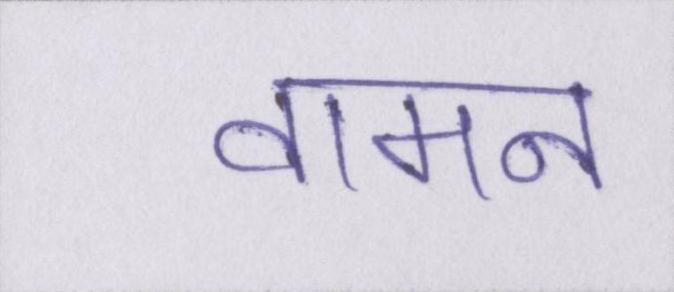 वामन